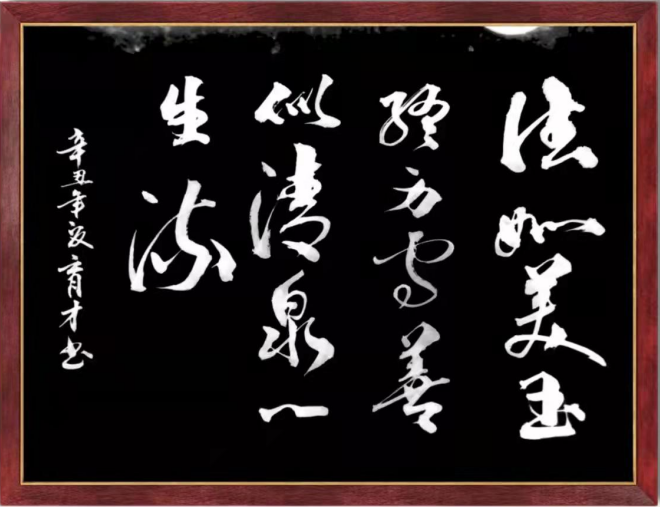 法如美玉
方善
似清泉心
生流
辛丑年夏育才书